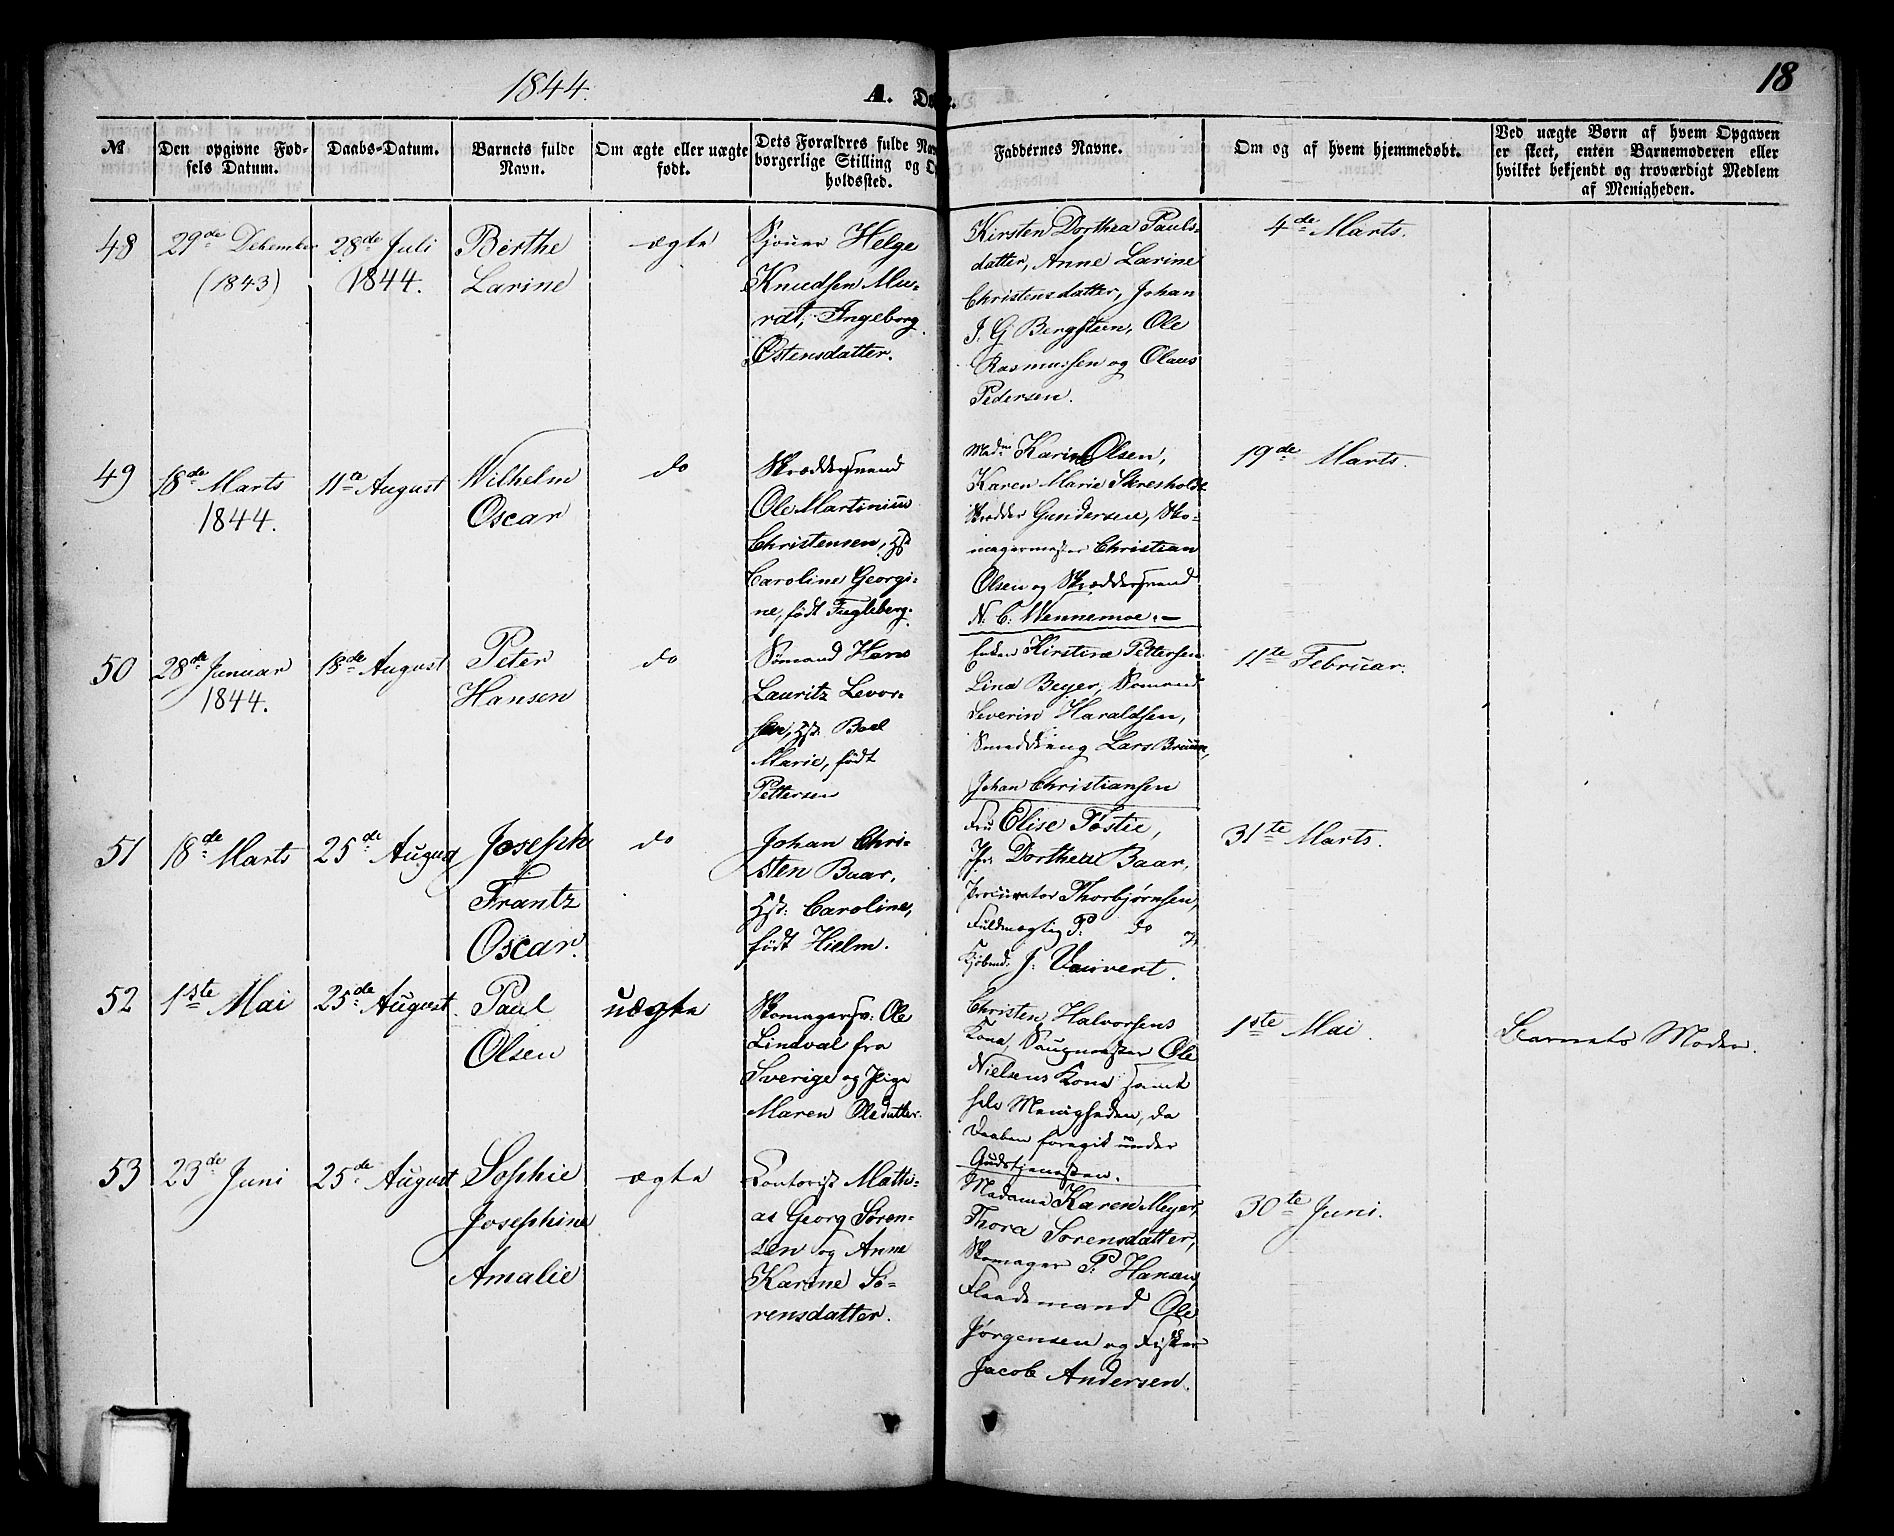 1844.
A. Døbte.
18
№
Den opgivne Fød-
sels Datum.
Daabs-Datum.
Barnets fulde
Navn.
Om ægte eller uægte
født.
Dets Forældres fulde Nav
borgerlige Stilling og O
holdssted.
Faddernes Navne.
Om og af hvem hjemmedøbt.
Ved uægte Børn af hvem Opgaven
er skeet, enten Barnemoderen eller
hvilket bekjendt og troværdigt Medlem
af Menigheden.
48
29de Desember
(1843)
28de Juli
1844.
Birthe
Larine
ægte
Sjouer Helge
Knudsen Mu-
rdt, Ingeborg
Østensdatter.
Kirsten Dorthea Pauls-
datter, Anne Larine
Christensdatter, Johan
J. G Bergsteen, Ole
Rasmussen og Olaus
Pedersen.
4de Marts.
49
18de Marts
1844.
11te August
Wilhelm
Oscar
do
Skræddersvend
Ole Martinius
Christensen, Hst
Caroline Georgi-
ne, født Fugleberg.
Madm Karine Olsen,
Karen Marie Skresholdt
Skrædder Gundersen, Sko-
magermester Christian
Olsen og Skræddersvend
N. C. Wennemoe.-
19de Marts.
50
28de Januar
1844.
18de August
Peter
Hansen
do
Sømand Hans
Lauritz Levor-
sen, Hst. Boel
Marie, født
Pettersen
Enken Kirstine Pettersen
Lina Beyer, Sømand
Severin Haraldsen,
Smeddreng Lars Bruun,
Johan Christiansen
11te Februar.
51
18de Marts
25de August
Joseph
Frantz
Oscar.
do
Johan Chri-
sten Baar,
Hst: Caroline,
født Hielm.
Fru Elise Føstie,
Jfr. Dorthea Baar,
Procurator Thorbjørnsen,
Fuldmægtig P. do
Kjøbmd. J. Vauvert.
31te Marts.
52
1ste Mai
25de August.
Paul
Olsen
uægte
Skomagersv: Ole
Lindval fra
Sverige og Pige
Maren Olsdatter.
Christen Halvorsens
Kone, Saugmester Ole
Nielsens Kone samt
hele Menigheden, da
Daaben foregik under
Gudstjenesten.
1ste Mai.
Barnets Moder.
53
23de Juni
25de August
Sophie
Josephine
Amalie
ægte
Contorist Mathi-
as Georg Søren-
sen og Anne
Karine Sø-
rensdatter.
Madame Karen Meyer,
Thora Sørensdatter,
Skomager P. Hansen,
Flaademand Ole
Jørgensen og Fisker
Jacob Andersen.
30te Juni.